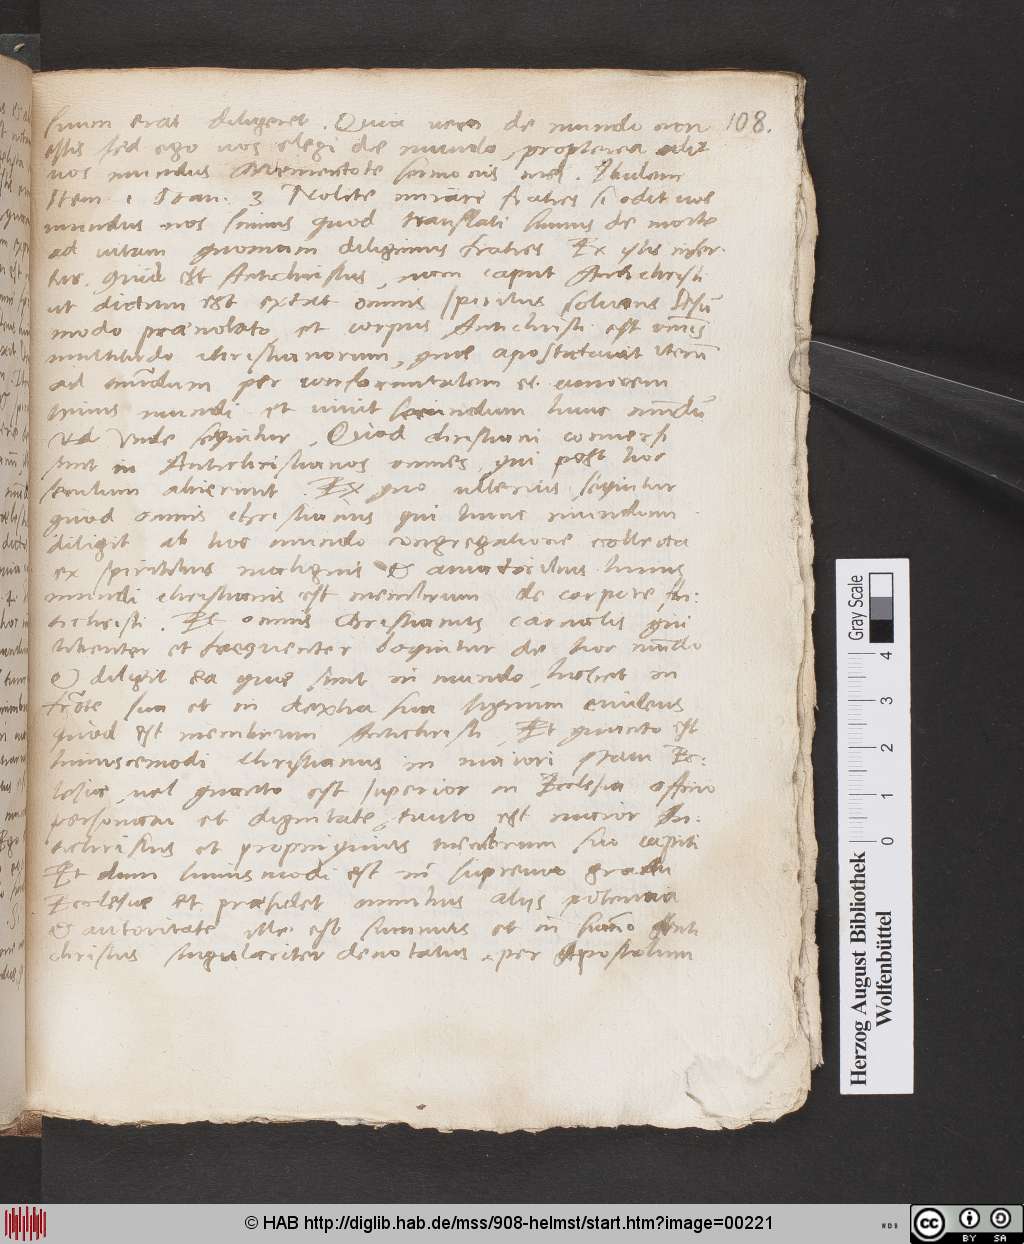 108.
suum erat diligeret. Quia vero de mundo non
estis sed ego vos elegi de mundo, propterea odit
vos mundus Mementote sermonis mei. Ibidem
Item 1 Ioan. 3 Nolite mirari fratres si odit vos
mundus nos scimus quod translati sumus de morte
ad vitam quoniam diligimus fratres Ex istis infer
tur. Quid est Antichristus, nam caput Antichristi
ut dictum est extat omnis spiritus solvens Iesū
modo praenotato et corpus Antichristi est om̄is
multitudo christianorum, que apostatavit iterū
ad mūdum per conformitatem et amorem
huius mundi et vivit secundum hunc mūdū
Vnde sequitur, Quod christiani conversi
sunt in Antichristianos omnes, qui post hoc
seculum abierunt. Ex quo ulterius sequitur
quod omnis christianus qui hunc mundum
diligit ab hoc mundo congregatione collecta
ex spiritibus malignis & amatoribus huius
mundi christianis est membrum de corpore An:
tichristi. Et omnis Christianus carnalis qui
libenter et frequenter loquitur de hoc mūdo
& diligit ea que sunt in mundo, habet in
frōte sua et in dextra sua signum
quod est membrum Antichristi, Et quanto est
huiuscemodi christianus in maiori statu Ec:
lesie, vel quanto est superior in Ecclesia officio
personatu et dignitate, tanto est maior An:
tichristus et propinquius membrum suo capiti
Et dum huiusmodi est in supremo gradu
Ecclesie et praesidet omnibus aliis potentia
& autoritate ille est summus et in Anti
christus singulariter denotatus per Apostolum
Herzog August Bibliothek
Wolfenbüttel
Gray Scale
0 1 2 3 4
© HAB http://diglib.hab.de/mss/908-helmst/start.htm?image=00221
WDB
cc BY SA